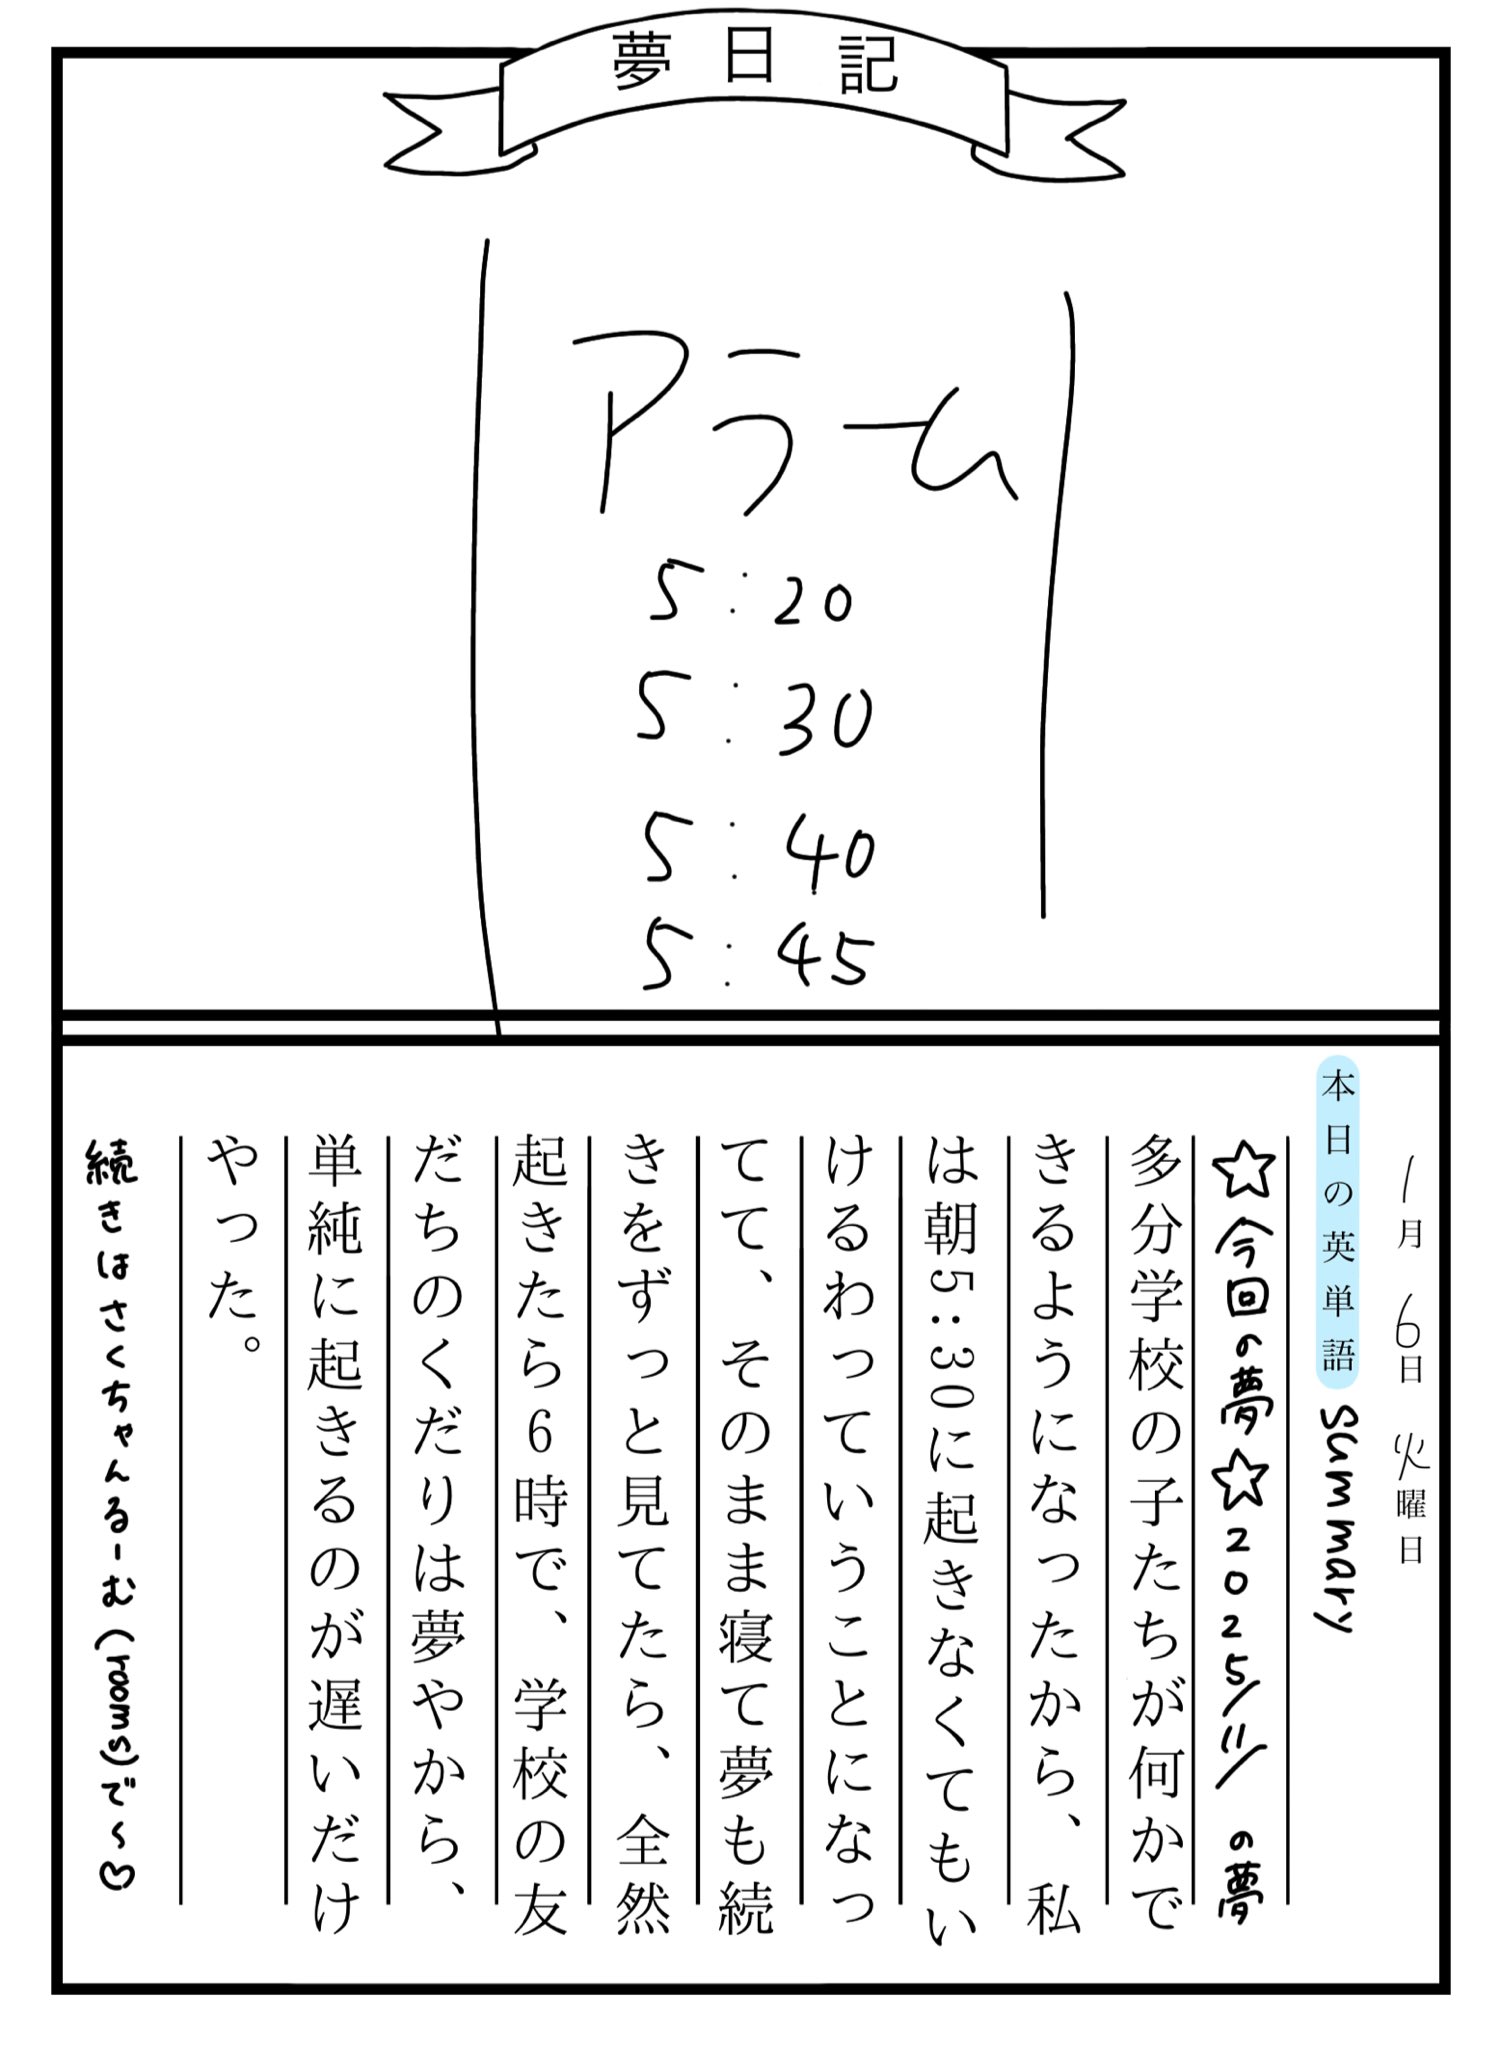 夢日記
アラーム
5:20
5:30
5:40
5:45
1月6日火曜日
本日の英単語 summary
☆今回の夢☆2025/11/ の夢
多分学校の子たちが何かで
きるようになったから、私
は朝5:30に起きなくてもい
けるわっていうことになっ
てて、そのまま寝て夢も続
きをずっと見てたら、全然
起きたら6時で、学校の友
だちのくだりは夢やから、
単純に起きるのが遅いだけ
やった。
続きはさくちゃんるーむ(rooms)で~♡